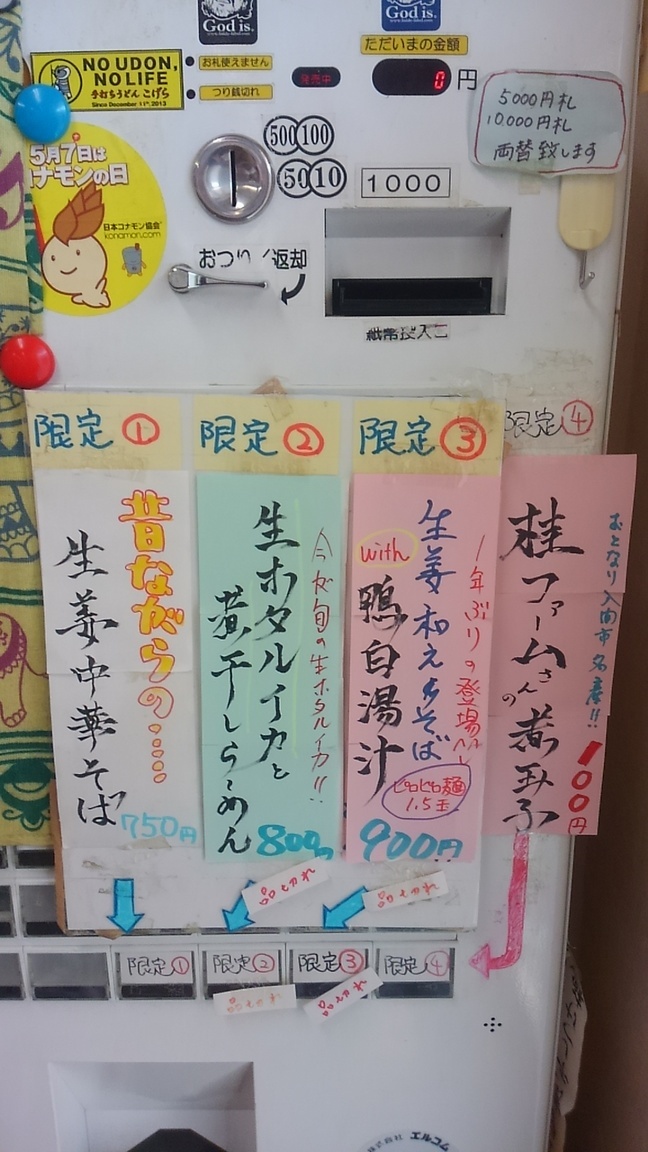 God is.
God is.
ただいまの金額
NO UDON,
NO LIFE
手打うどん こげら
Since December 11th, 2013
お札使えません
つり銭切れ
発売中
0円
5000円札
10.000円札
両替致します
500 100
50 10
1000
5月7日は
コナモンの日
日本コナモン協会
konamon.com
おつり/返却
紙幣投入口
限定①
昔ながらの……
生姜中華そば
750円
限定②
今が旬の生ホタルイカ!!
生ホタルイカと
煮干しらーめん
800円
限定③
1年ぶりの登場
生姜和えそば
with
鴨白湯汁
ピロピロ麺
1.5玉
900円
限定④
おとなり入間市名産!!
桂ファームさんの煮玉子
100円
品切れ
品切れ
限定①
限定②
限定③
限定④
品切れ
品切れ
株式会社 エルコム